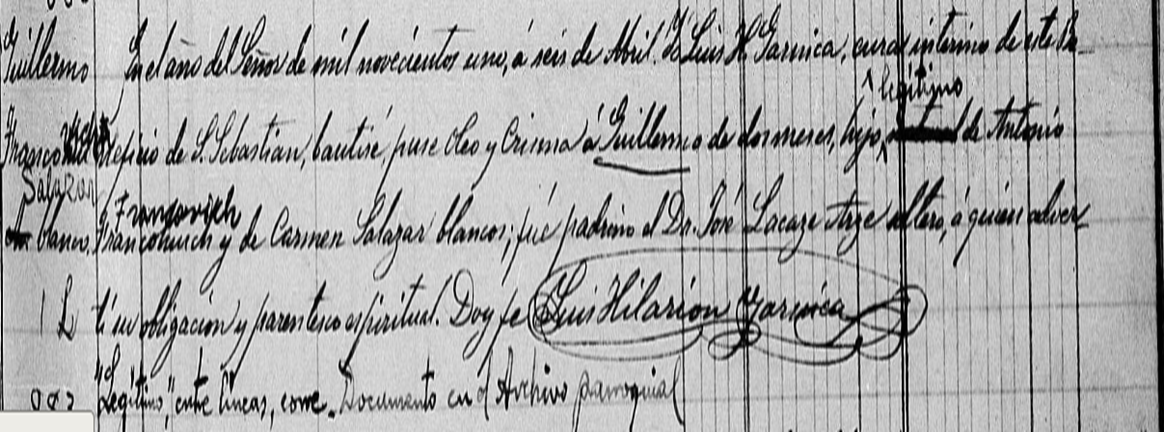 Guillermo En el año del Señor de mil novecientos uno, á seis de Abril. Yo Luis H. Garnica, cura interino de este Be-
legítimo
Franco vich neficio de S. Sebastian, bauticé, puse Oleo y Crisma á Guillermo de dos meses, hijo de Antonio
Salazar
Francovich
blanco, y de Carmen Salazar blancos; fué padrino el Dr. José Lacaze Arze soltero, á quien adver-
1 L tí su obligacion y parentesco espiritual. Doy fe Luis Hilarion Garnica
"Legítimo", entre líneas, corre. Documento en el Archivo parroquial